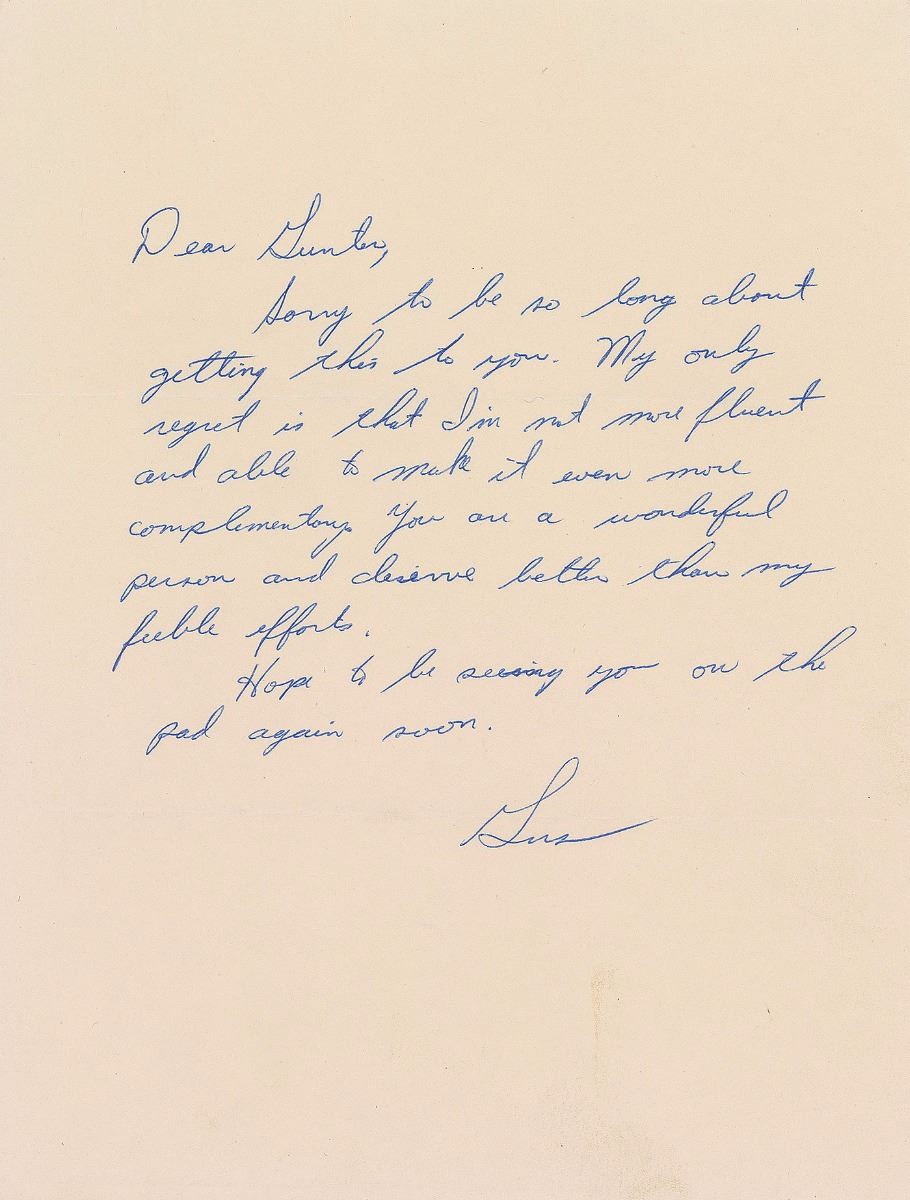 Dear Gunter,
Sorry to be so long about
getting this to you. My only
regret is that I'm not more fluent
and able to make it even more
complimentary. You are a wonderful
person and deserve better than my
feeble efforts.
Hope to be seeing you on the
pad again soon.
Gus